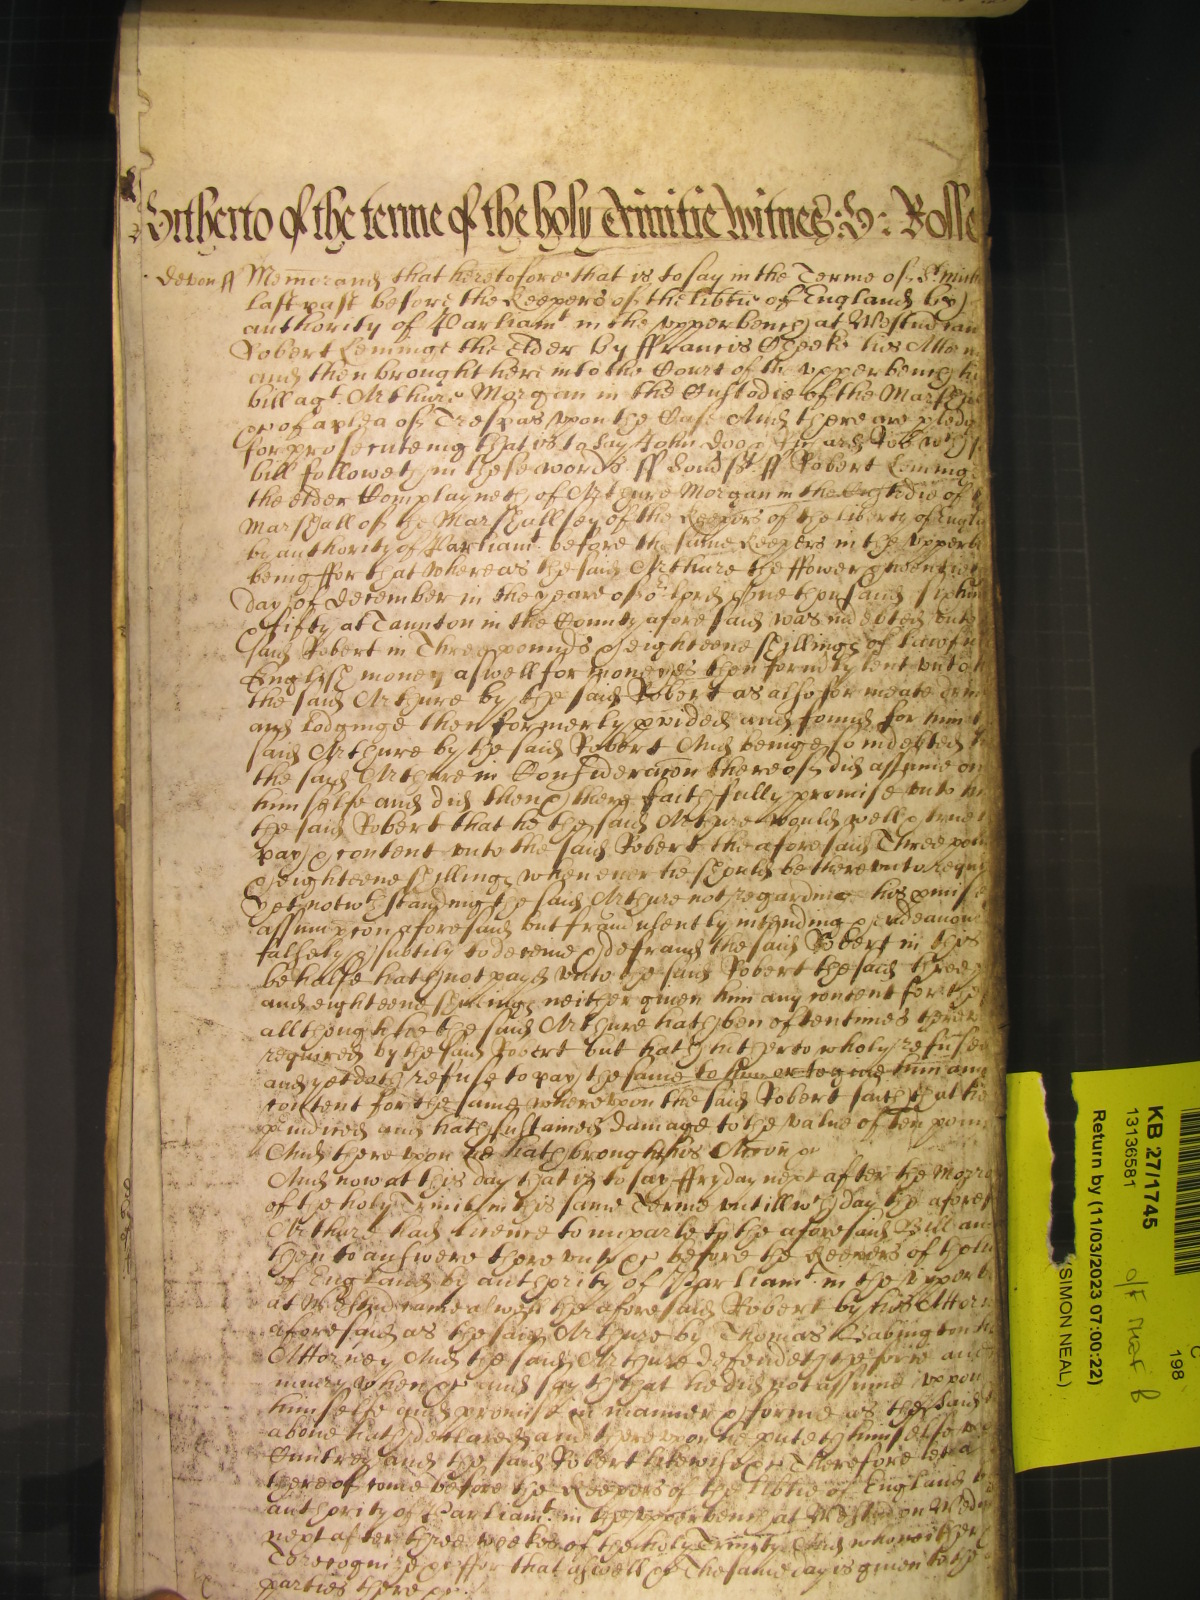 Hitherto of the terme of the holy Trinitie Witnes: H: Rolle
Devon ff Memorand that heretofore that is to say in the Terme of St Mich
last past before the Keepers of the libtie of England by
authority of Parliamt in the upper bench at Westm came
Robert Leminge the Elder by ffrancis his Attor
and then brought here into the Court of the upper bench his
bill agt Arthure Morgan in the Custodie of the Marshall
&c of a plea of Trespas upon the Case And there are pledg
for prosecuteing that is to say John Doo & Rich Roo wch s
bill followeth in these words ff Devon ss ff Robert Leming
the elder Complayneth of Arthure Morgan in the Custodie of
Marshall of the Marshallsey of the Keepers of the liberty of Engla
by authority of Parliamt before the same Keepers in the upper b
being ffor that whereas the said Arthure the ffower & twentieth
day of December in the yeare of or Lord one thousand six hun
& fifty at Taunton in the County aforesaid was indebted unto
said Robert in Three pounds & eighteene shillings of lawfu
English money aswell for moneyes then formerly lent unto h
the said Arthure by the said Robert as also for meate drin
and Lodginge then formerly p'vided and found for him t
said Arthure by the said Robert And beinge so indebted h
the said Arthure in Consideracon thereof did assume on
himselfe and did then & there faithfully promise unto h
the said Robert that he the said Arthure would well & truel
pay & content unto the said Robert the aforesaid Three poun
& eighteene shillings when ever he should be thereunto requi
Yet notwthstanding the said Arthure not regardinge his p'mise
assumpcon aforesaid but fraudulently intending & endeavour
falsely & subtily to deceive & defraud the said Robert in this
behalfe hath not payd unto the said Robert the said three p
and eighteene shillings neither given him any content for the
although hee the said Arthure hath ben oftentimes thereu
required by the said Robert but hath hitherto wholy refused
and yet doth refuse to pay the same to him or to give him any
content for the same whereupon the said Robert saith that he
p'iudiced and hath sustained damage to the value of Ten poun
And thereupon he hath brought his Accon &c
And now at this day that is to say ffryday next after the Morro
of the holy Trinity in this same Terme untill wch day the afores
Arthure had licence to imparle to the aforesaid Bill an
then to answere thereunto &c before the Keepers of the li
of England by authority of Parliamt in the upper b
at Westm came aswell the aforesaid Robert by his Attorn
aforesaid as the said Arthure by Thomas Babington hi
Attorney And the said Arthure defendeth the force and
iniury when &c and sayth that he did not assume upon
himselfe and promise in manner & forme as the said
above hath declared and thereupon he puteth himselfe u
Cuntrey and the said Robert likewise &c Therefore let a
thereof come before the Keepers of the libtie of England b
authority of Parliamt in the upper bench at Westm on Wed
next after three weekes of the holy Trinity And who neither
To recognize &c ffor that aswell &c The same day is given to the
parties there &c
KB 27/1745
13136581
Return by (11/03/2023 07:00:22)
(SIMON NEAL)
198